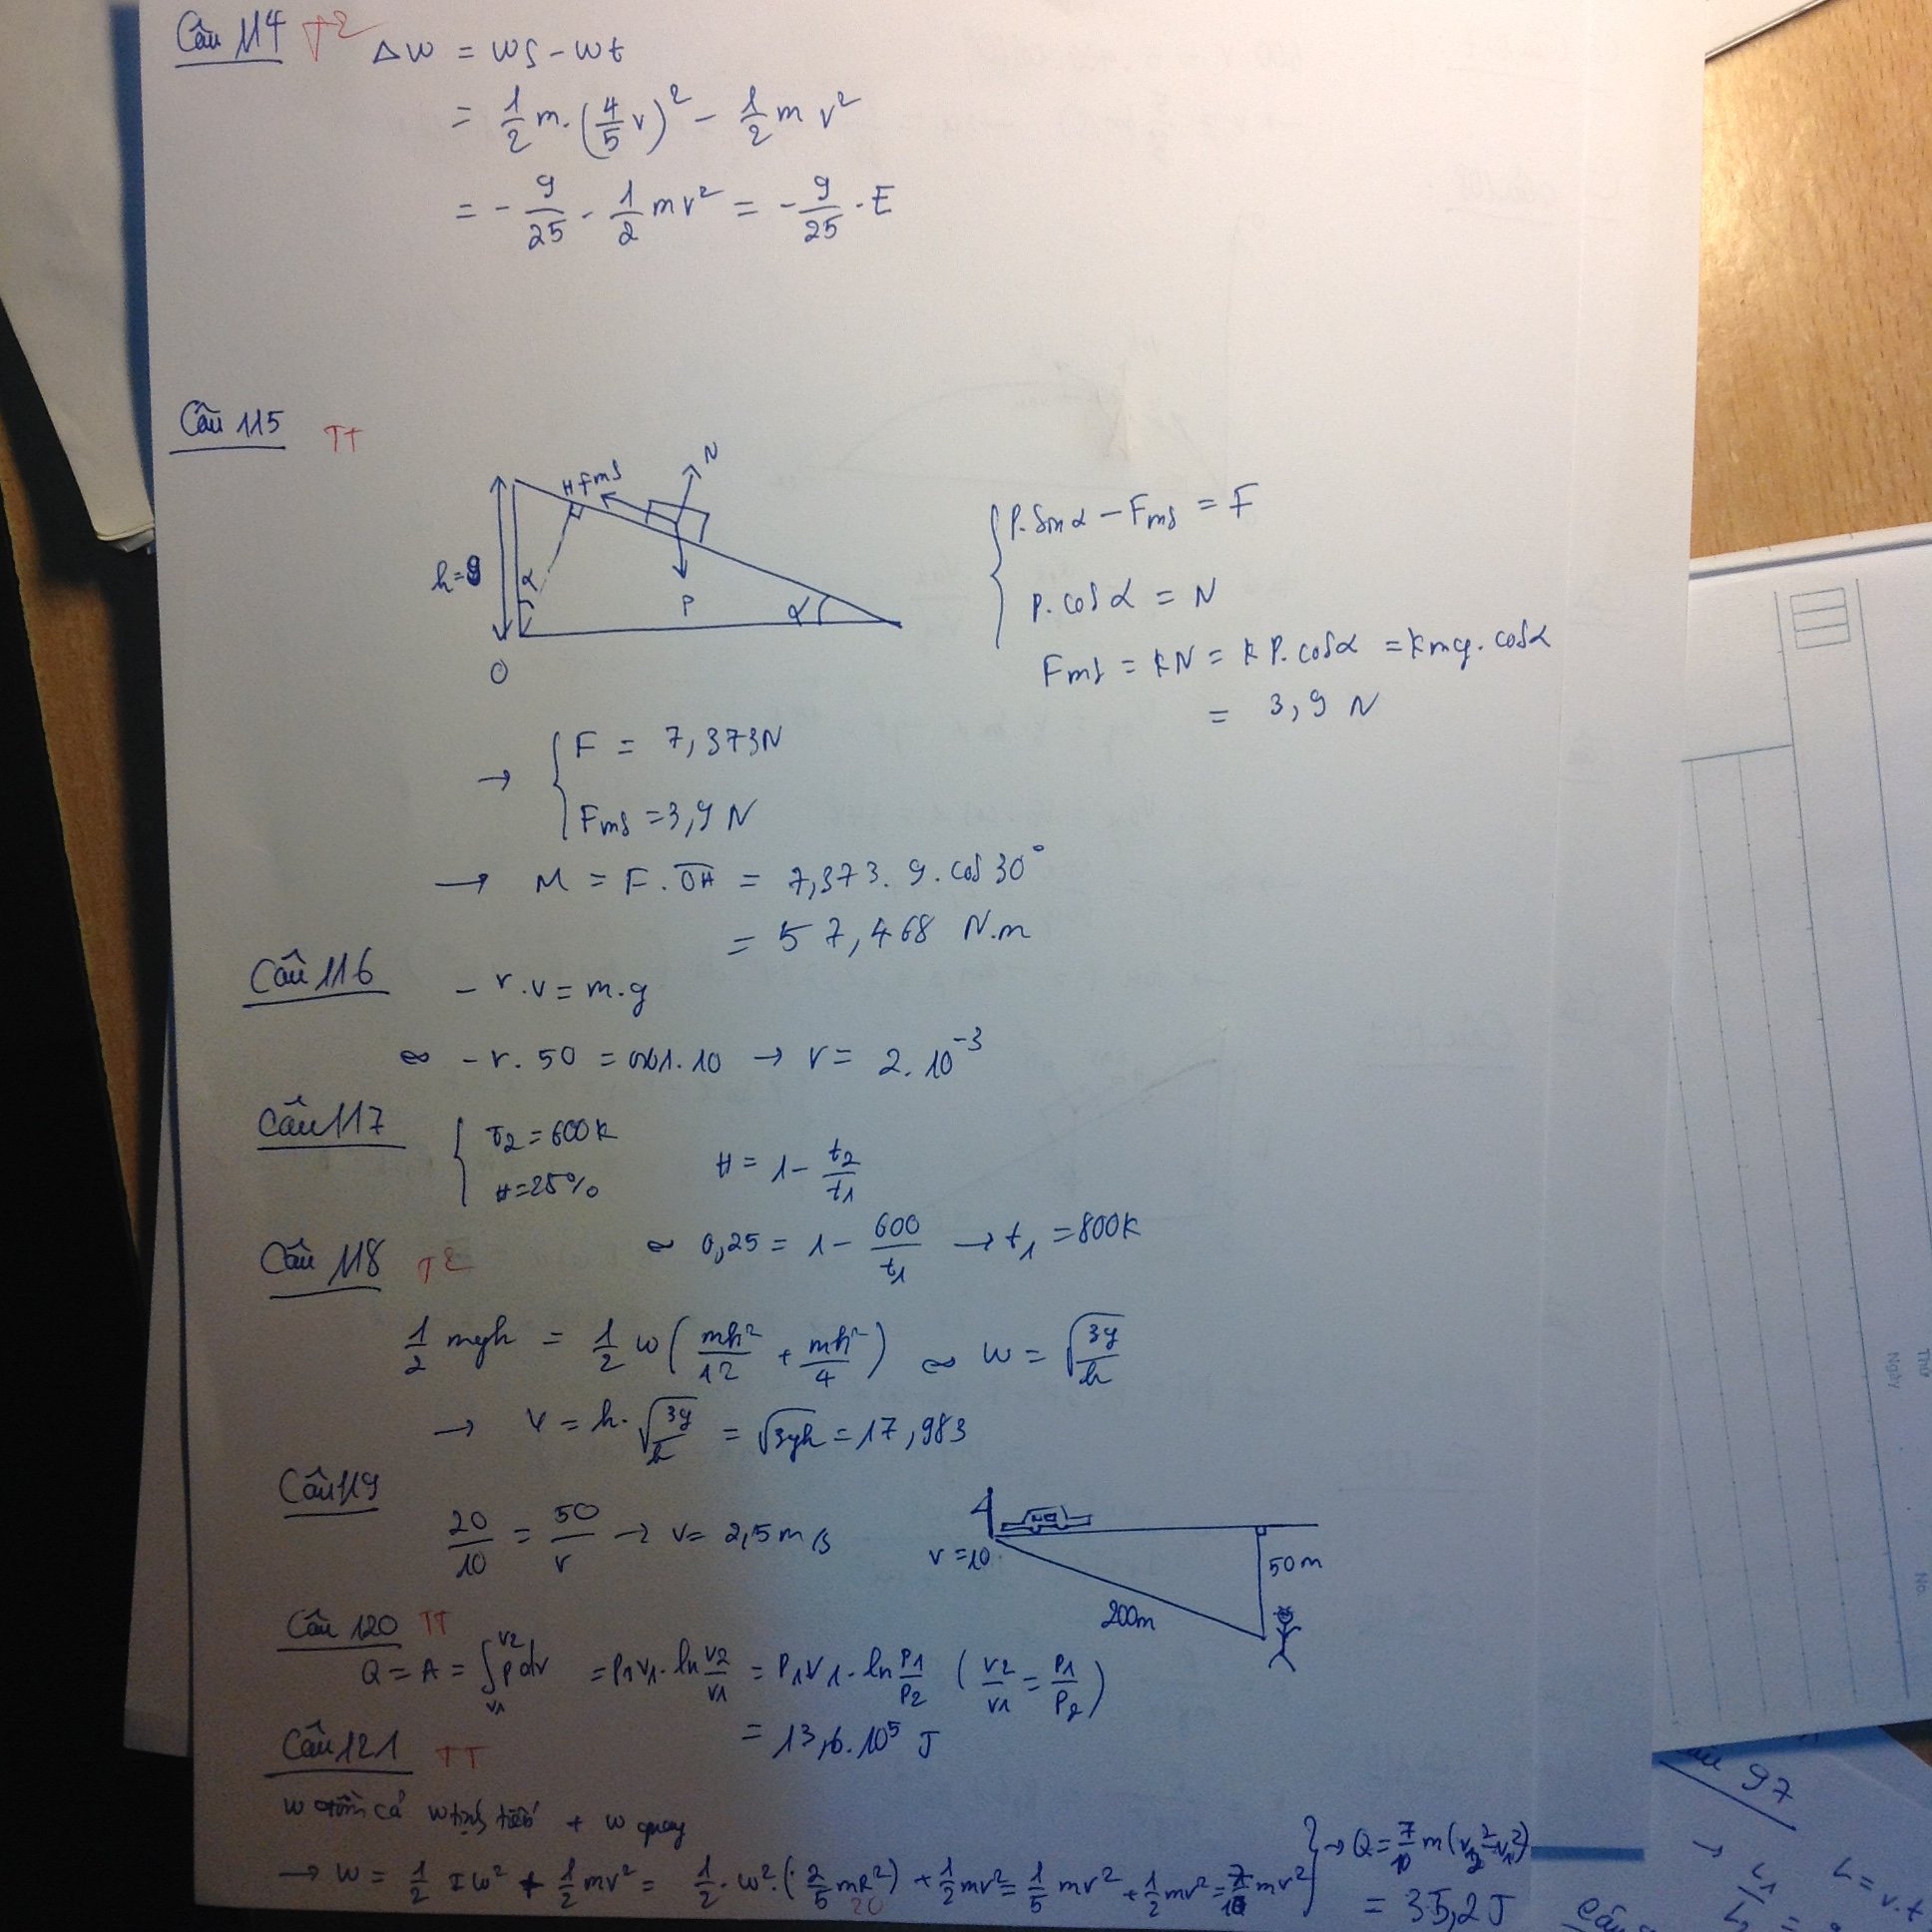 Câu 114 T2
ΔW = Ws - Wt
= 1/2 m.(4/5 v)² - 1/2 m v²
= - 9/25 . 1/2 mv² = - 9/25 . E
Câu 115 TT
H Fms N
h=9 α P α
O
P.sinα - Fms = F
P.cosα = N
Fms = kN = kP.cosα = kmg.cosα
= 3,9 N
→ F = 7,373N
Fms = 3,9 N
→ M = F.OH = 7,373. 9. cos 30°
= 57,468 N.m
Câu 116 - r.v = m.g
∞ - r. 50 = 0,01.10 → r = 2.10⁻³
Câu 117 T2 = 600K
H = 25% H = 1 - t2/t1
∞ 0,25 = 1 - 600/t1 → t1 = 800K
Câu 118 T2
1/2 mgh = 1/2 w (mh²/12 + mh²/4) ∞ w = √(3g/h)
→ v = h.√(3g/h) = √3gh = 17,983
Câu 119
20/10 = 50/v → v = 2,5 m/s
v = 10
50m
200m
Câu 120 TT
Q = A = ∫ v1 v2 pdv = P1V1.ln v2/v1 = P1V1.ln P1/P2 (v2/v1 = P1/P2)
= 13,6.10⁵ J
Câu 121 TT
w tịnh tiến + w quay
→ W = 1/2 Iw² + 1/2 mv² = 1/2 . w².(2/5 mR²) + 1/2 mv² = 1/5 mv² + 1/2 mv² = 7/10 mv²
→ Q = 7/10 m(v2² - v1²)
= 35,2 J
20
Thứ
Ngày
No.
97
→ L1
L = v.t
Câu